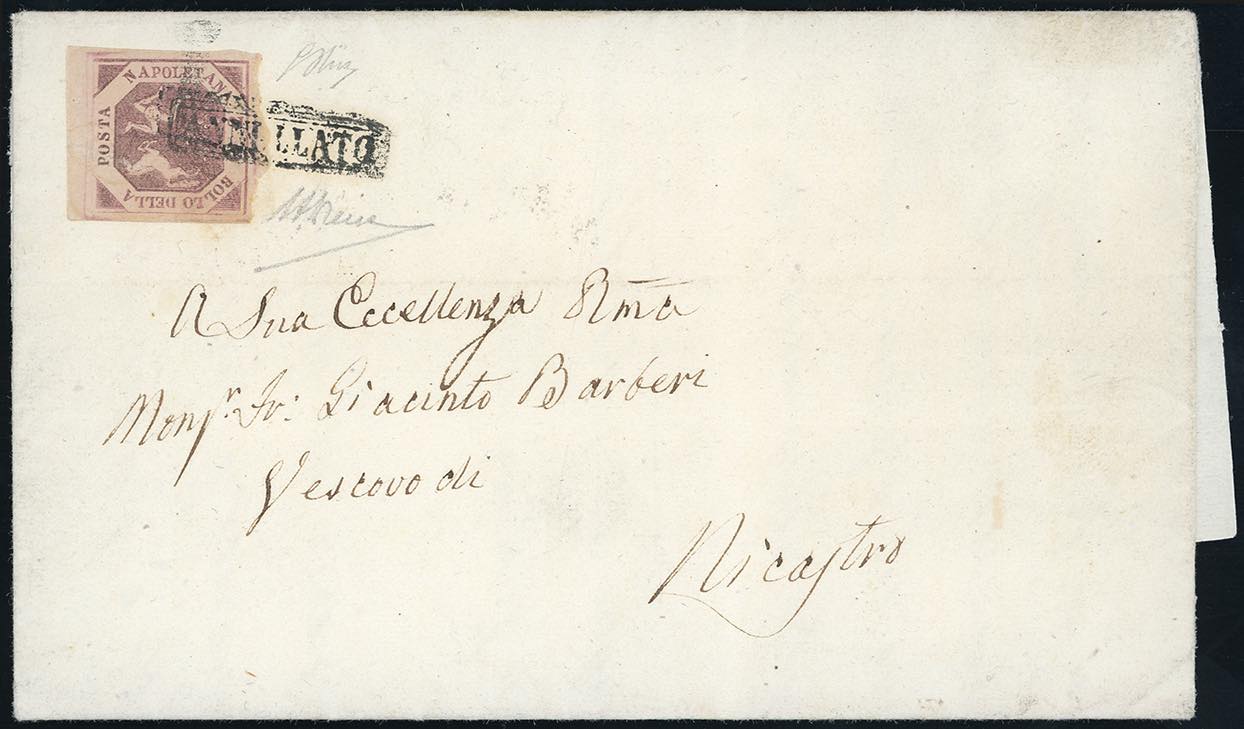 POSTA NAPOLETANA
BOLLO DELLA
ANNULLATO
A Sua Eccellenza Rma
Monsr. Fr: Giacinto Barberi
Vescovo di
Nicastro